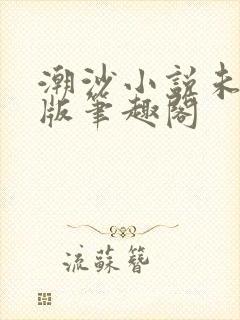 潮沙小説未
版筆趣閣
流蘇簪